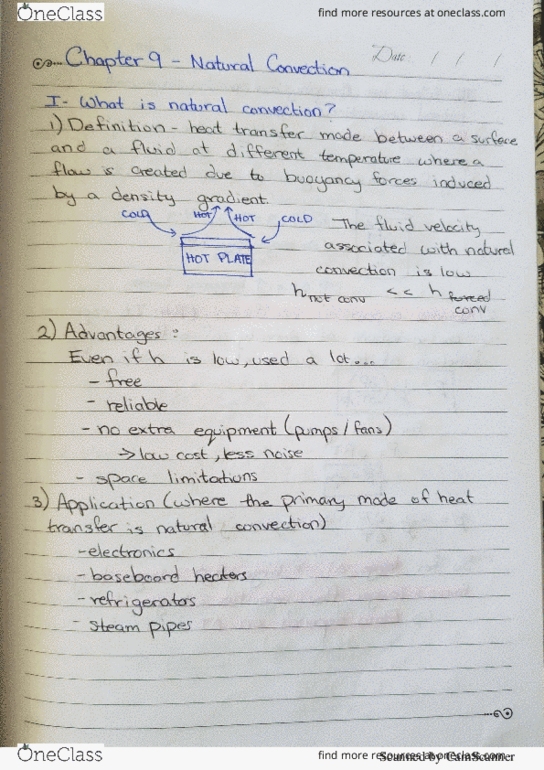 OneClass
find more resources at oneclass.com
Chapter 9 - Natural Convection
Date / / /
I- What is natural convection?
1) Definition - heat transfer mode between a surface
and a fluid at different temperature where a
flow is created due to buoyancy forces induced
by a density gradient.
COLD HOT HOT COLD
HOT PLATE
The fluid velocity
associated with natural
convection is low
h nat conv << h forced conv
2) Advantages :
Even if h is low, used a lot...
- free
- reliable
- no extra equipment (pumps / fans)
→ low cost, less noise
- space limitations
3) Application (where the primary mode of heat
transfer is natural convection)
- electronics
- baseboard heaters
- refrigerators
- steam pipes
OneClass
find more resources at oneclass.com
Scanned by CamScanner